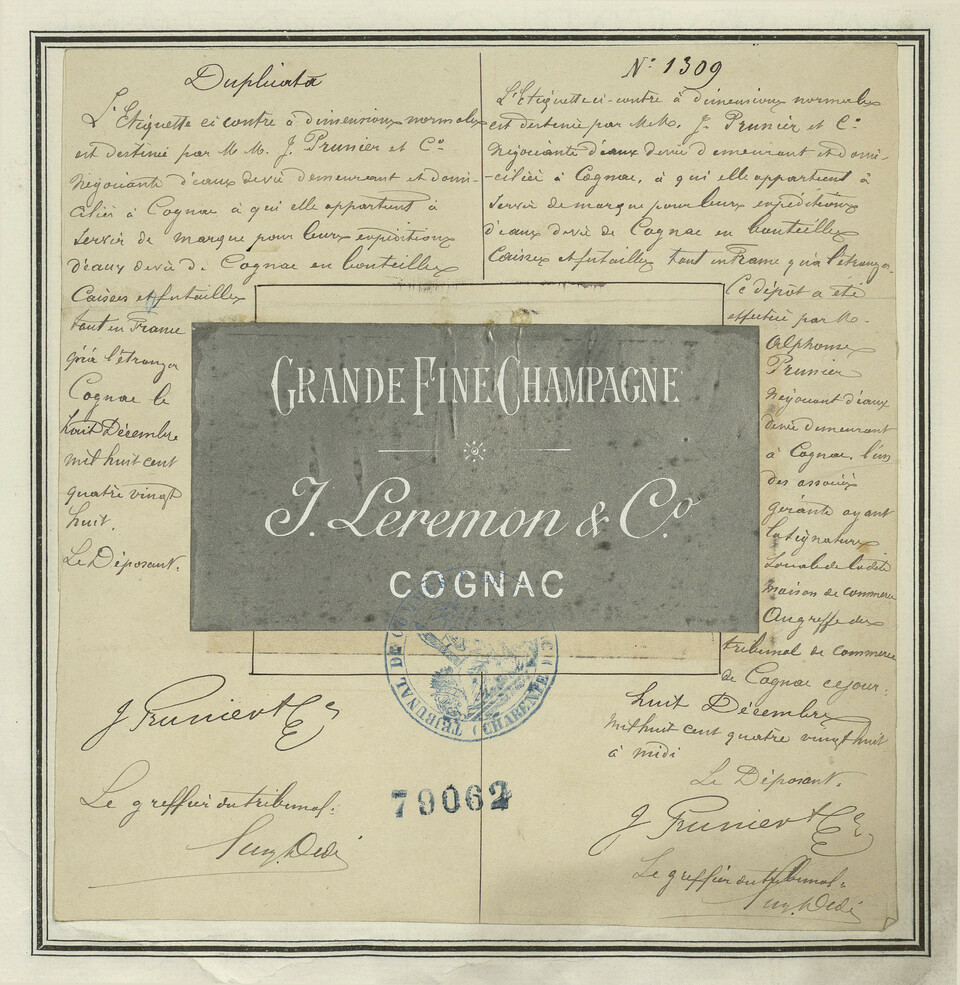 Duplicata
L'Etiquette ci contre à dimensions normales
est destinée par M M. J. Prunier et Co
Négociants d'eaux de vie demeurant et domi-
ciliés à Cognac à qui elle appartient à
servir de marque pour leurs expéditions
d'eaux de vie de Cognac en bouteilles
Caisses et futailles
tant en France
qu'à l'étranger
Cognac le
huit Décembre
mil huit cent
quatre vingt
huit.
Le Déposant.
J Prunier & Ce
Le greffier du tribunal.
No 1309
L'Etiquette ci-contre à dimensions normales
est destinée par M.M. J. Prunier et Co
Négociants d'eaux de vie demeurant et domi-
-ciliés à Cognac, à qui elle appartient à
servir de marque pour leurs expéditions
d'eaux de vie de Cognac en bouteilles
Caisses et futailles tant en France qu'à l'étranger.
Ce dépôt a été
effectué par M.
Alphonse
Prunier
Négociant d'eaux
de vie demeurant
à Cognac, l'un
des associés
gérants ayant
la signature
sociale de la dite
maison de commerce
Au greffe du
tribunal de commerce
de Cognac ce jour:
huit Décembre
mil huit cent quatre vingt huit
à midi
Le Déposant.
J Prunier & Ce
Le greffier du tribunal.
GRANDE FINE CHAMPAGNE
J. Leremon & Co
COGNAC
TRIBUNAL DE CO
(CHARENTE)
79062